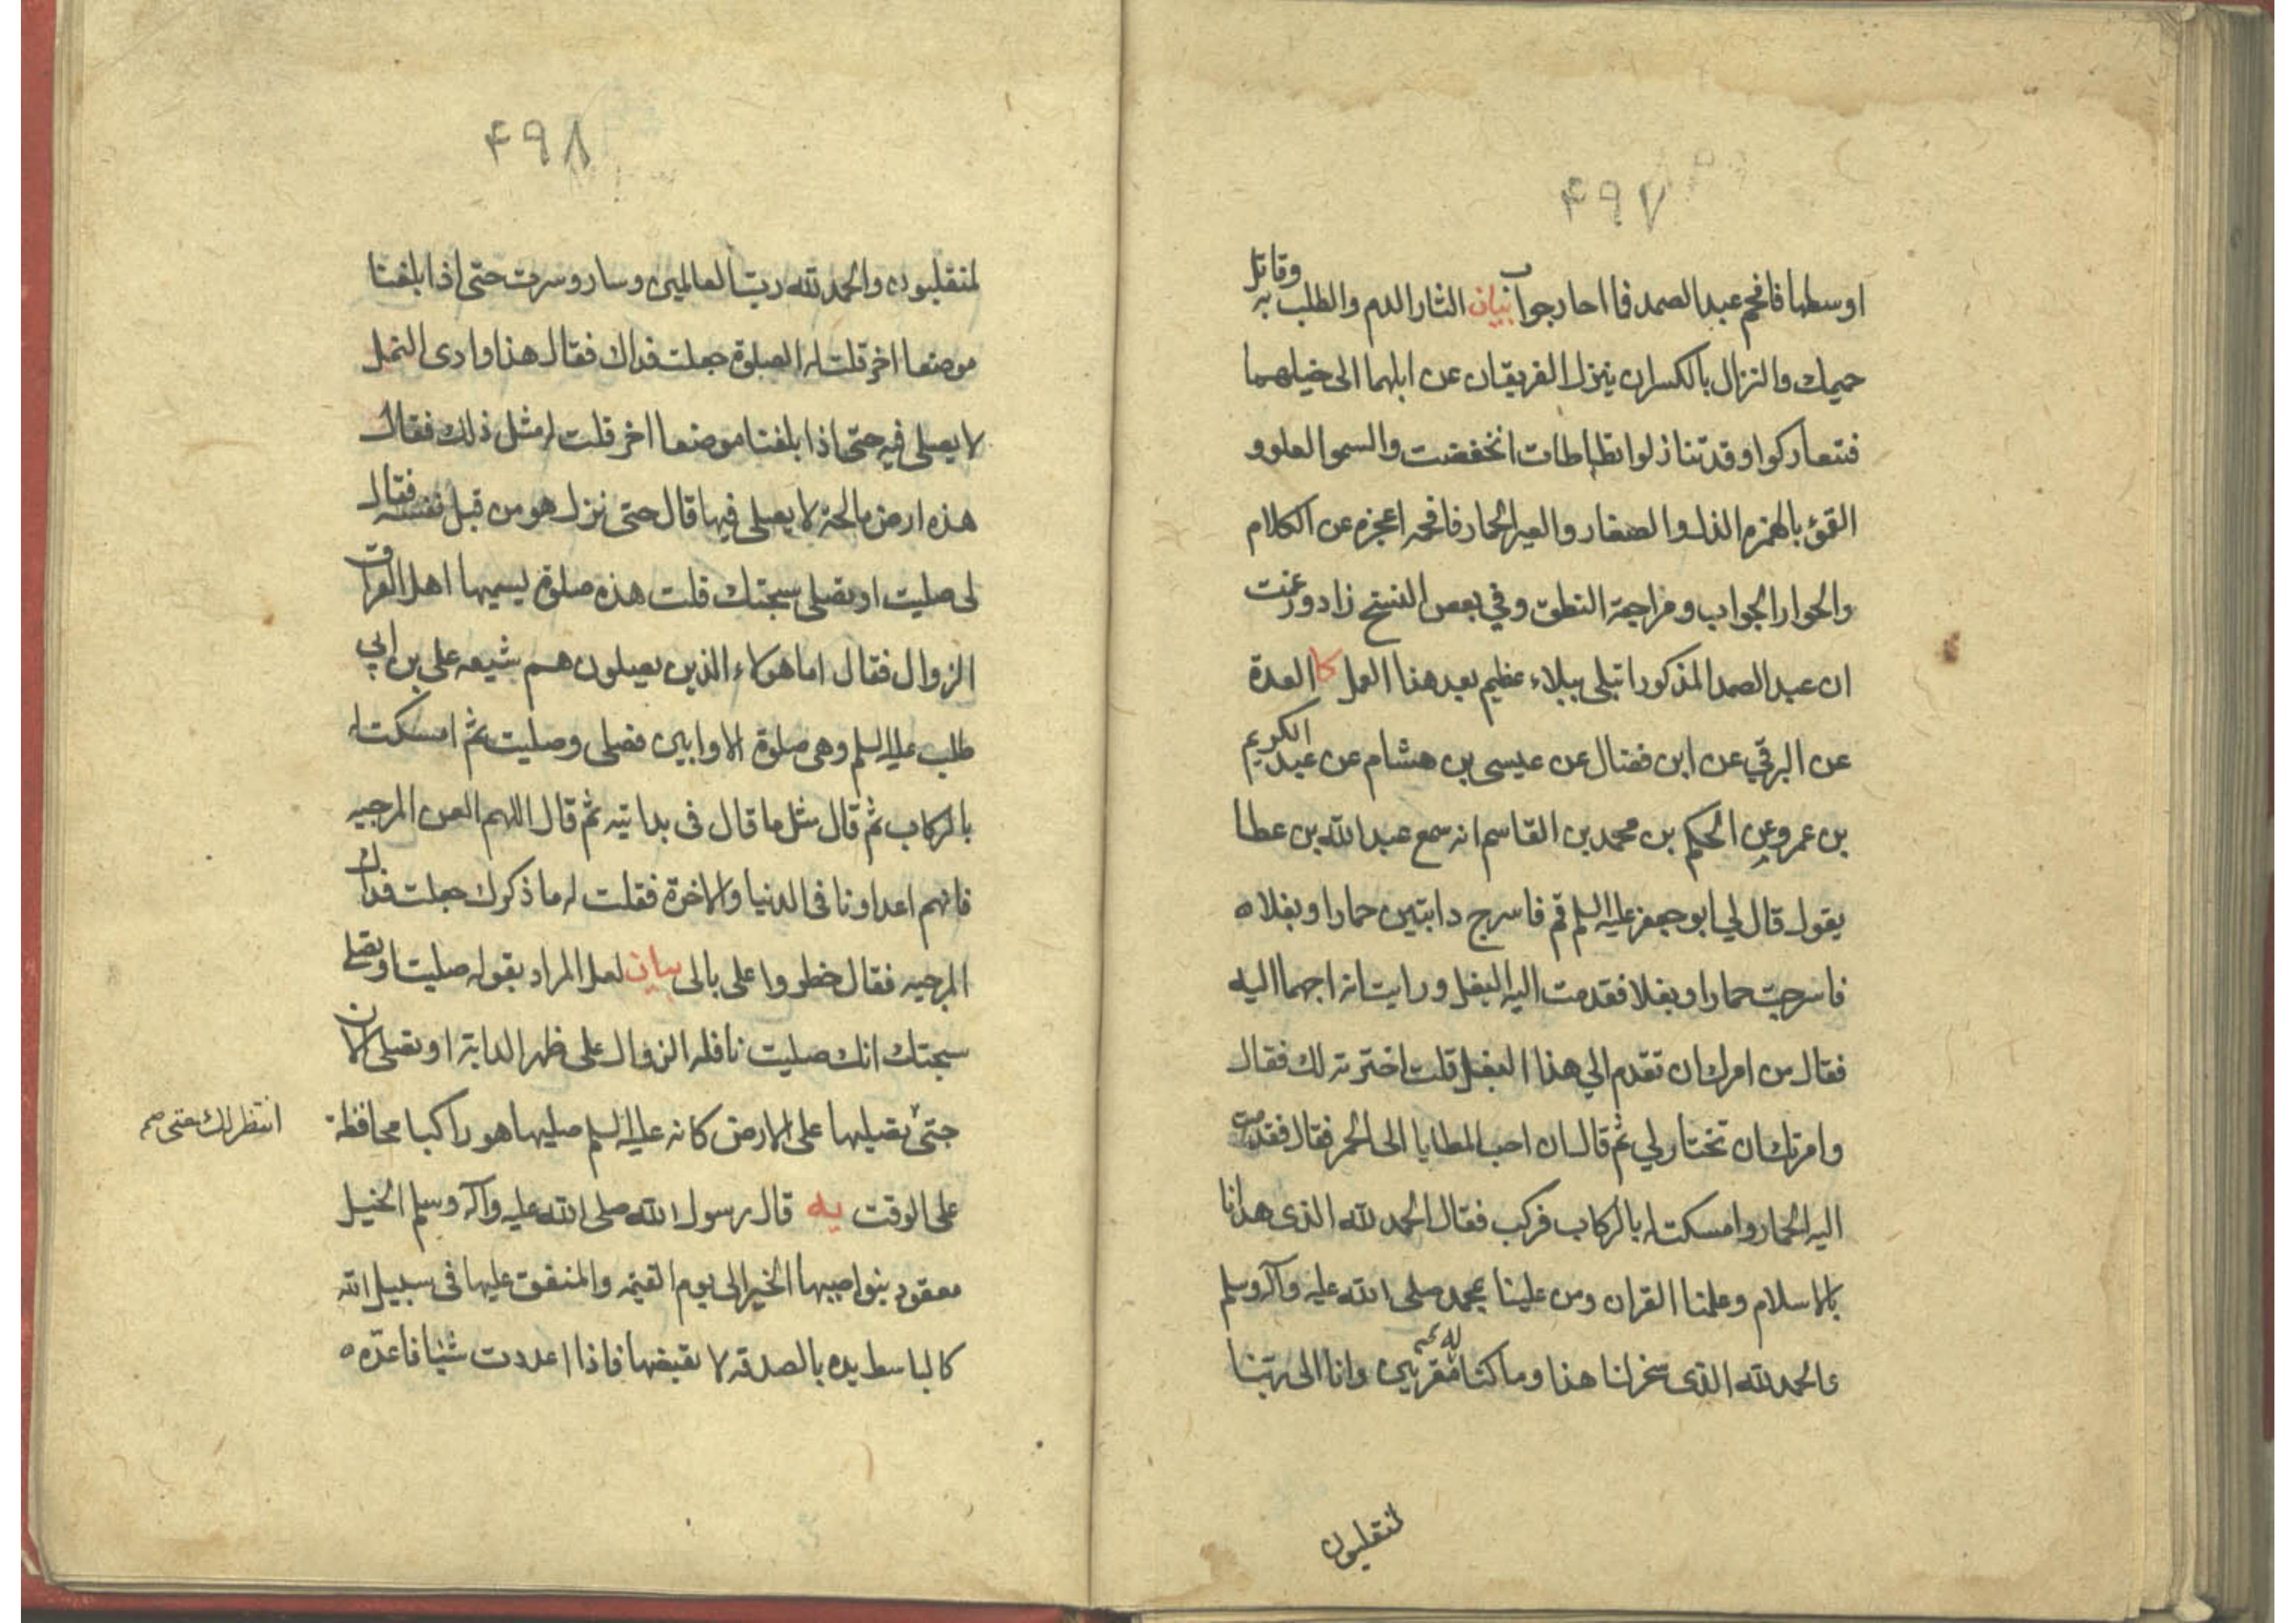 ۴۹۷
اوسطها فافحم عبد الصمد فما احار جوابا بيان الثار الدم والطلب به وقاتل
حميمك والنزال بالكسر ان ينزل الفريقان عن ابلهما الى خيلهما
فتعاركوا وقد تنازلوا تطاطات انخفضت والسمو العلو و
القمؤ بالهمزه الذل والصغار والعير الحمار فافحمه اعجزه عن الكلام
والحوار الجواب ومراجعة النطق وفي بعض النسخ زاد وزعمت
ان عبد الصمد المذكور ابتلى ببلاء عظيم بعد هذا العمل كا العدة
عن البرقي عن ابن فضال عن عيسى بن هشام عن عبد الكريم
بن عمرو عن الحكم بن محمد بن القاسم انه سمع عبد الله بن عطا
يقول قال لي ابو جعفر عليه السلم قم فاسرج دابتين حمارا وبغلا ه
فاسرجت حمارا وبغلا فقدمت اليه البغل ورايت انه احبهما اليه
فقال من امرك ان تقدم الي هذا البغل قلت اخترته لك فقال
وامرتك ان تختار لي ثم قال ان احب المطايا الى الحمر فقال فقدمت
اليه الحمار وامسكت له بالركاب فركب فقال الحمد لله الذى هدانا
بالاسلام وعلمنا القران ومن علينا بمحمد صلى الله عليه وآله وسلم
والحمد لله الذى سخر لنا هذا وما كنا له مقرنين وانا الى ربنا
لمنقلبون
۴۹۸
لمنقلبون والحمد لله رب العالمين وسار وسرت حتى اذا بلغنا
موضعا اخر قلت له الصلوة جعلت فداك فقال هذا وادى النمل
لا يصلى فيه حتى اذا بلغنا موضعا اخر قلت له مثل ذلك فقال
هذه ارض مالحة لا يصلى فيها قال حتى نزل هو من قبل نفسه فقال
لى صليت او تصلى سبحتك قلت هذه صلوة يسميها اهل العراق
الزوال فقال اما هولاء الذين يصلون هم شيعه على بن ابي
طلب عليه السلم وهى صلوة الاوابين فصلى وصليت ثم امسكت له
بالركاب ثم قال مثل ما قال فى بدايته ثم قال اللهم العن المرجيه
فانهم اعداونا فى الدنيا والاخرة فقلت له ما ذكرك جعلت فداك
المرجيه فقال خطروا على بالى بيان لعل المراد بقوله صليت او تصلى
سبحتك انك صليت نافله الزوال على ظهر الدابة او تصلى الان
حتى تصليها على الارض كانه عليه السلم صليها هو راكبا محافظة
انتظر لك يعنى صح
على الوقت يه قال رسول الله صلى الله عليه وآله وسلم الخيل
معقود بنواصيها الخير الى يوم القيمه والمنفق عليها فى سبيل الله
كالباسط يده بالصدقه لا يقبضها فاذا اعددت شيئا فاعده ه